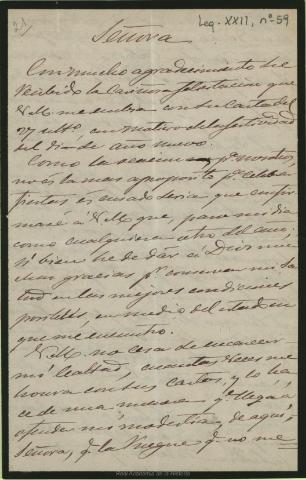 Leg. XXII, nº 59
Señora
Con mucho agradecimiento he
recibido la cariñosa felicitacion que
V.M. me envia con su carta del
27 ultº, con motivo de la festividad
del dia de año nuevo.
Como la pª nosotros,
no és la mas aproposito pª celebrar
fiestas és escusado seria que confir
mase á V.M. que, pasé mi dia
como cualquiera otro del año,
si bien he de dár á Dios mu
chas gracias pª conservar mi sa
lud en las mejores condiciones
posibles, en medio del estado en
que me encuentro.
V.M. no cesa de encarecer
mi lealtad, cuantas veces me
honra con sus cartas, y lo ha
ce de una manera qª llega á
ofender mi modestia; de aqui,
Señora, qª la ruegue qª no me
Real Academia de la Historia